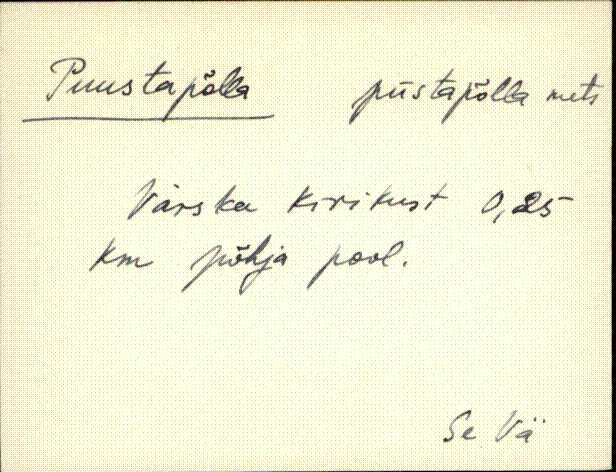 Puustapõlla pūstapõlla mets
Värska kirikust 0,25
km põhja pool.
Se Vä